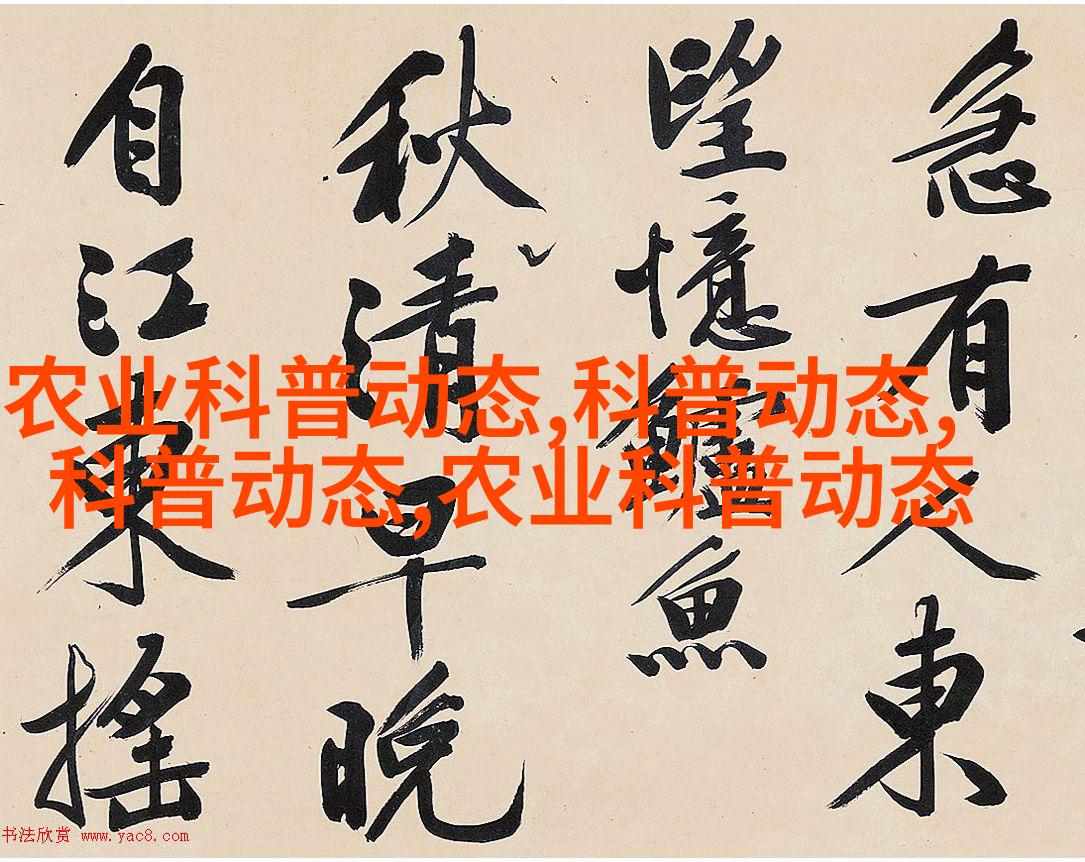 急有人東
望憶鱸魚
秋清早晚
自江東搖
农业科普动态,科普动态,
科普动态,农业科普动态
书法欣赏 www.yac8.com